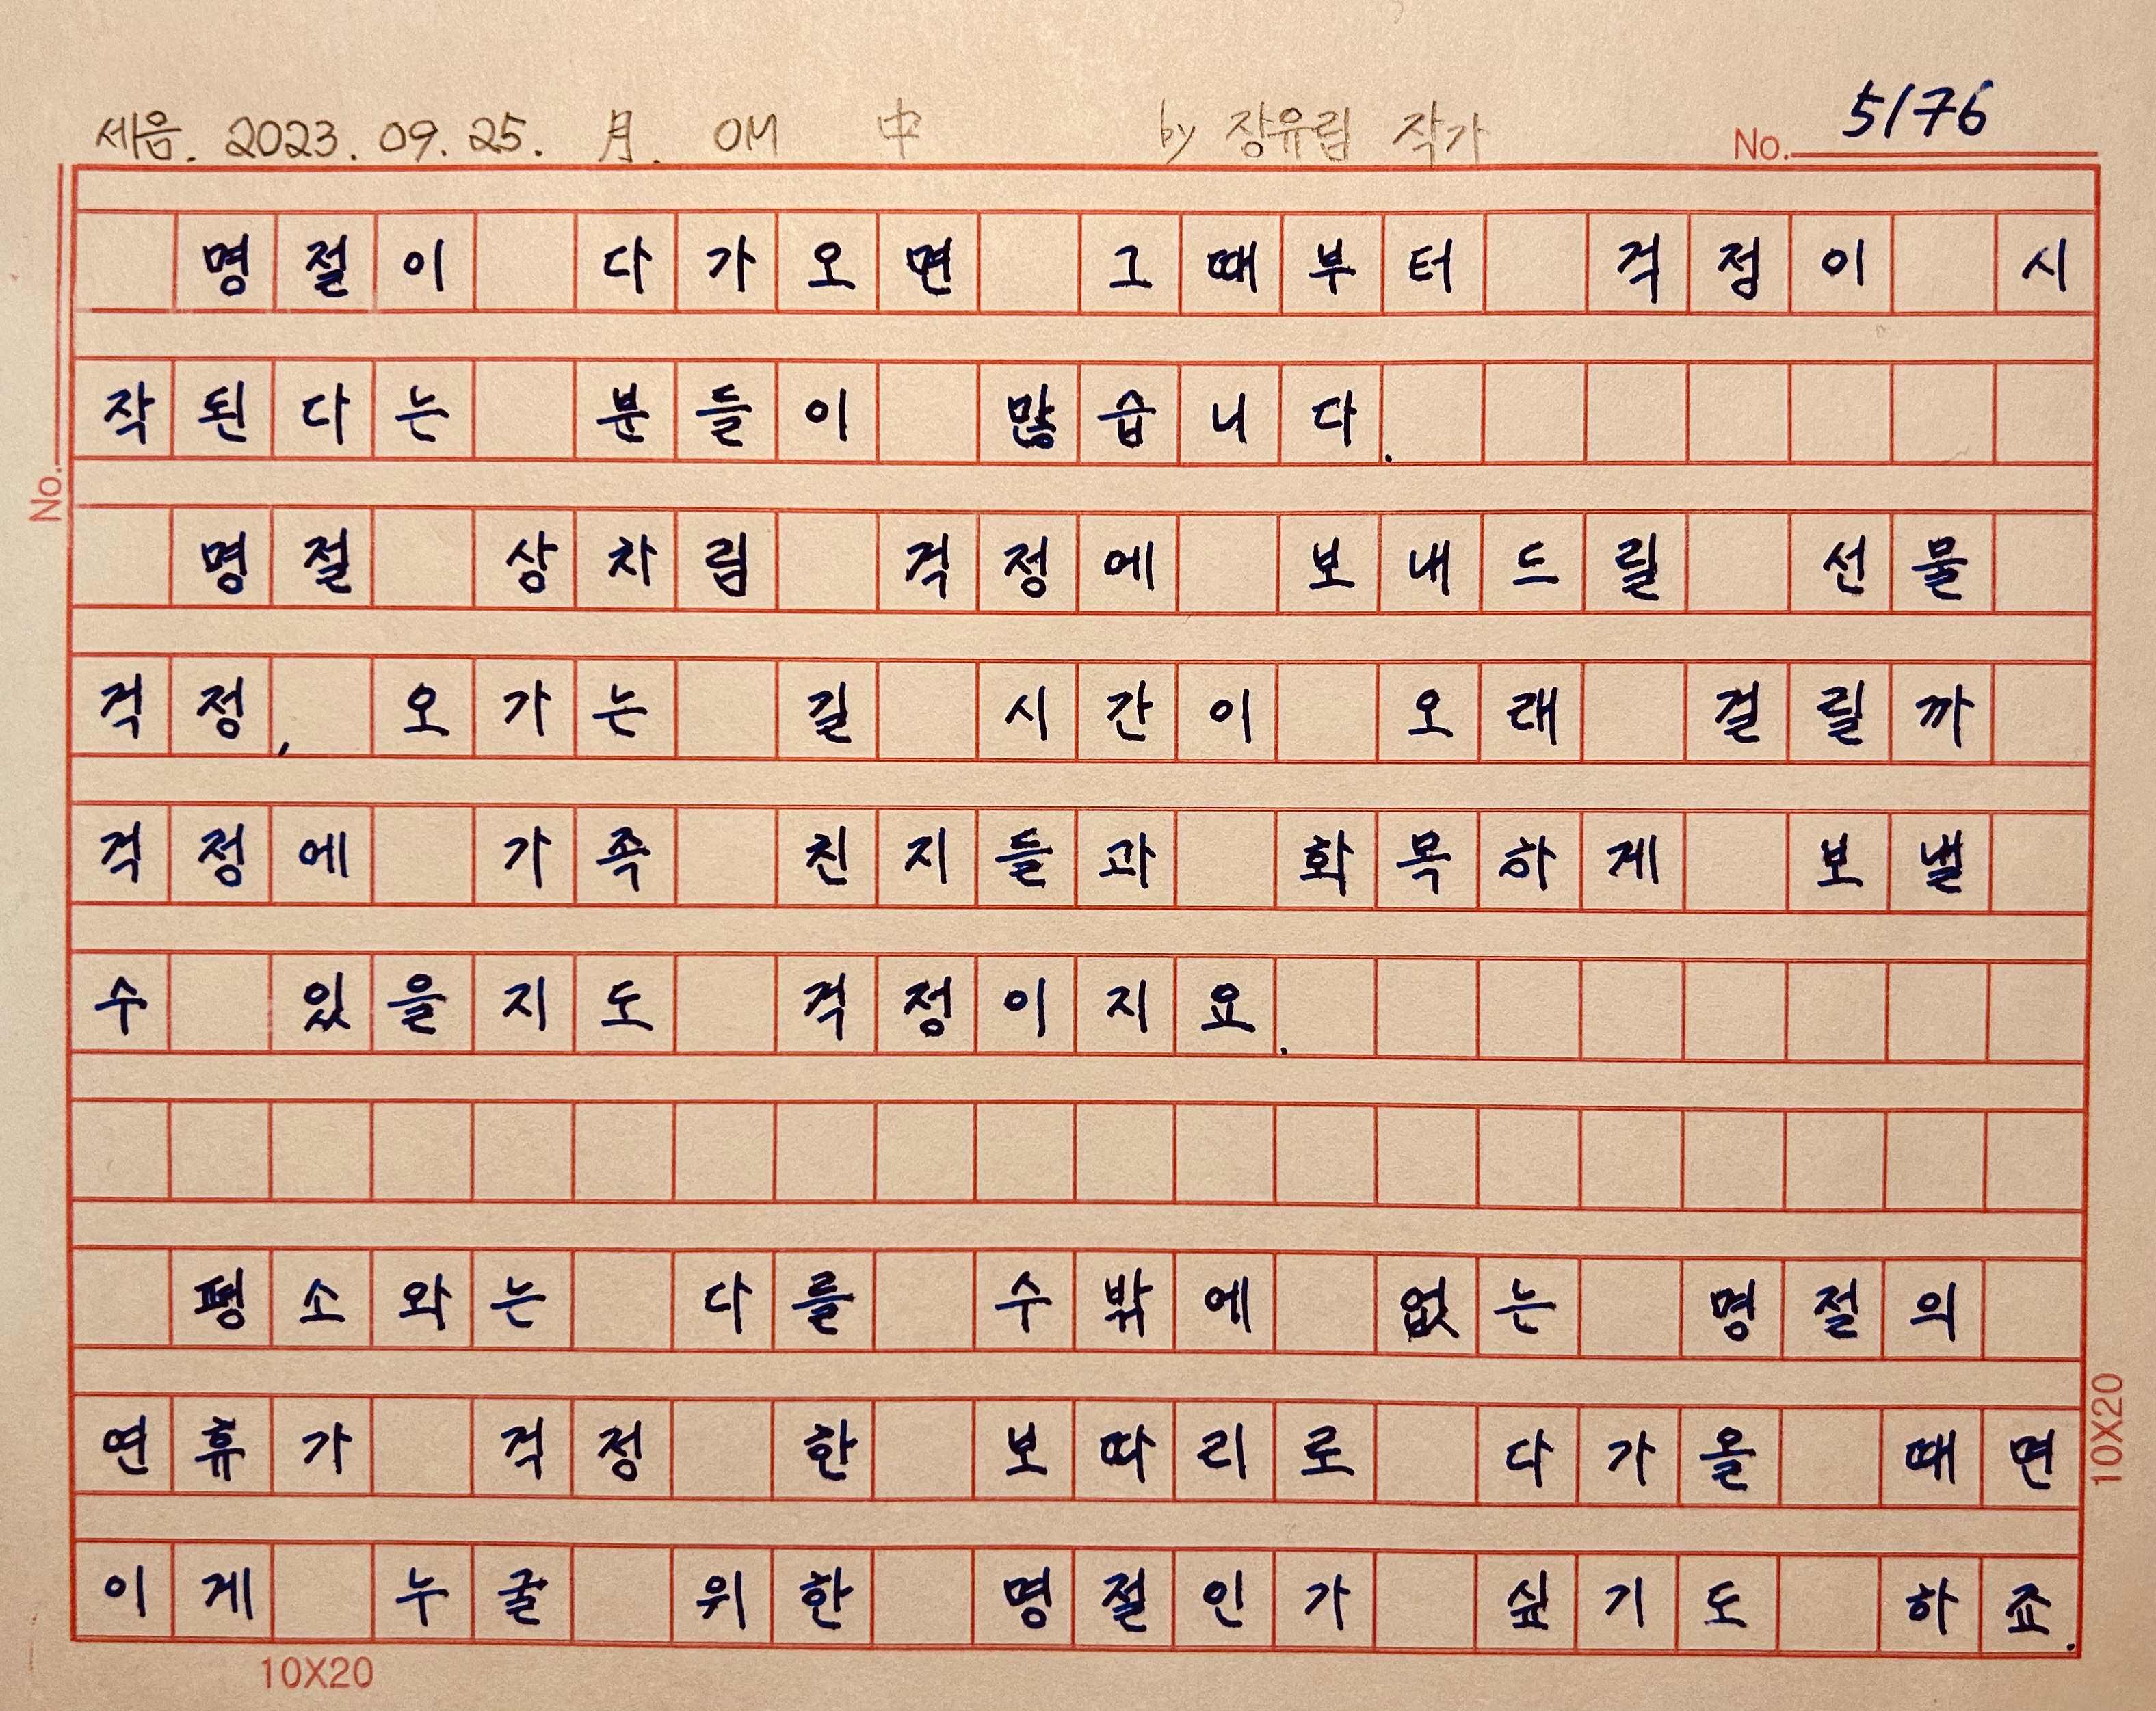 세음. 2023. 09. 25. 月. OM 中 by 장유림 작가 No. 5176
명절이 다가오면 그때부터 걱정이 시
작된다는 분들이 많습니다.
No.
명절 상차림 걱정에 보내드릴 선물
걱정, 오가는 길 시간이 오래 걸릴까
걱정에 가족 친지들과 화목하게 보낼
수 있을지도 걱정이지요.
평소와는 다를 수밖에 없는 명절의
연휴가 걱정 한 보따리로 다가올 때면
10X20
이게 누굴 위한 명절인가 싶기도 하죠.
10X20